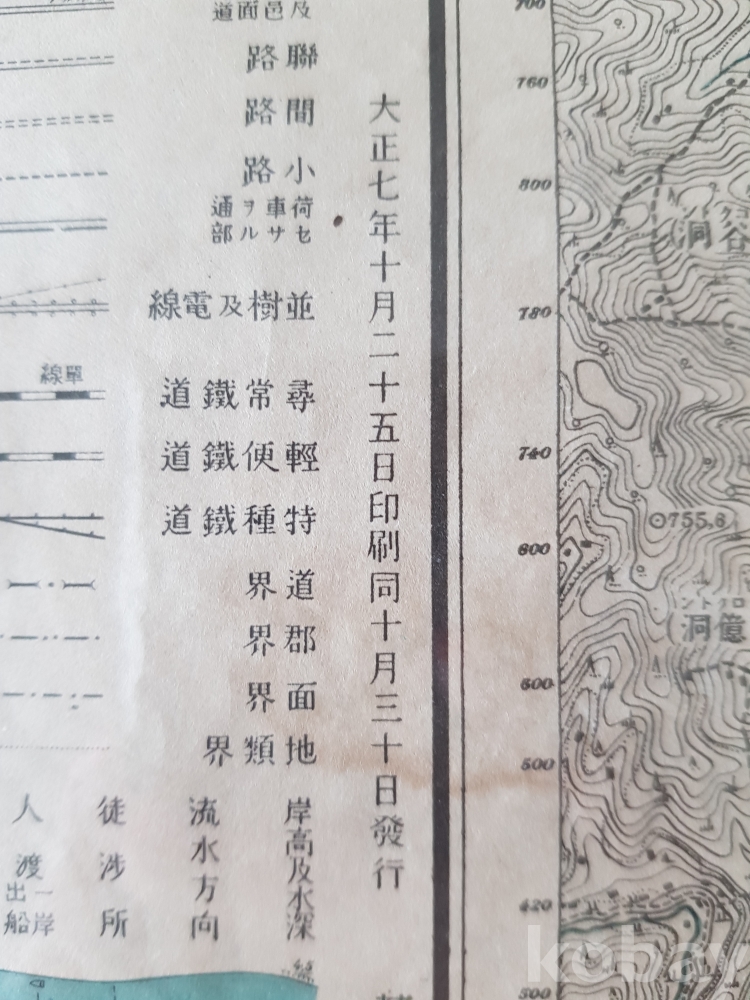 道面邑及
路聯
路間
路小
通ヲ車荷
部ルサセ
線電及樹並
線單
道鐵常尋
道鐵便輕
道鐵種特
界道
界郡
界面
界類地
岸高及水深
流水方向
徒涉所
人渡
出一
船岸
大正七年十月二十五日印刷同十月三十日發行
700
760
800
780
740
600
600
500
420
500
755,6
洞谷
洞億
kobay